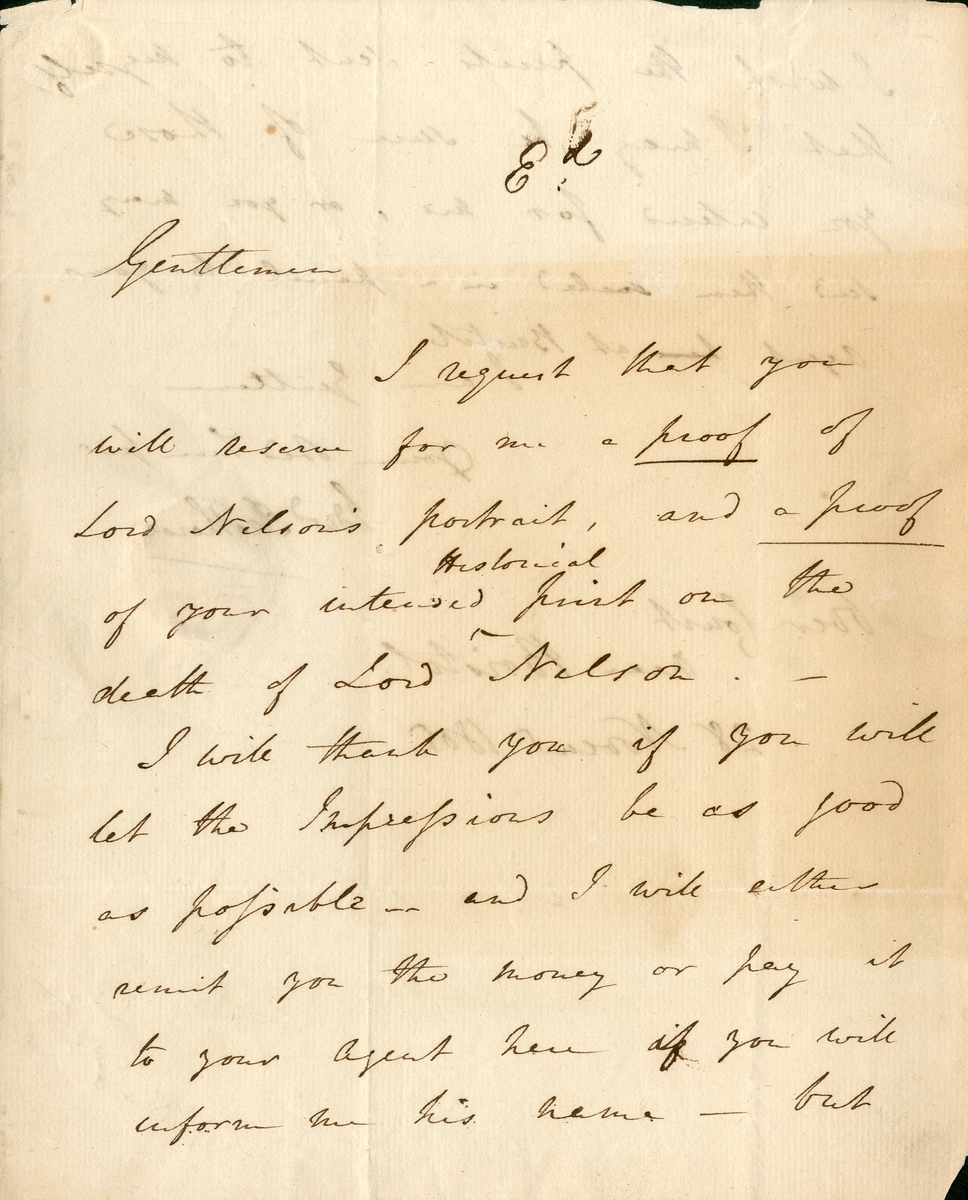 Ed
Gentlemen
I request that you
will reserve for me a proof of
Lord Nelson's portrait, and a proof
Historical
of your intended print on the
death of Lord Nelson. —
I will thank you if you will
let the Impreſsions be as good
as poſsible — and I will either
remit you the money or pay it
to your Agent here if you will
inform me his name — but